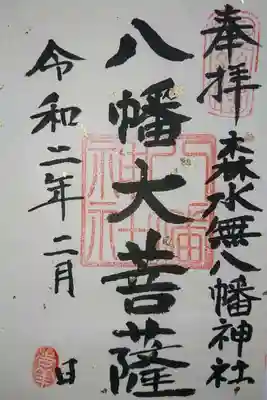 奉拝
森水無八幡神社
八幡大菩薩
令和二年二月 日